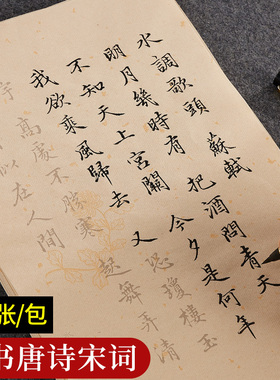 水調歌頭 蘇軾
明月幾時有 把酒問青天
不知天上宮闕 今夕是何年
我欲乘風歸去 又恐瓊樓玉
宇高處不勝寒 起舞弄清
在人間
张/包
书唐诗宋词